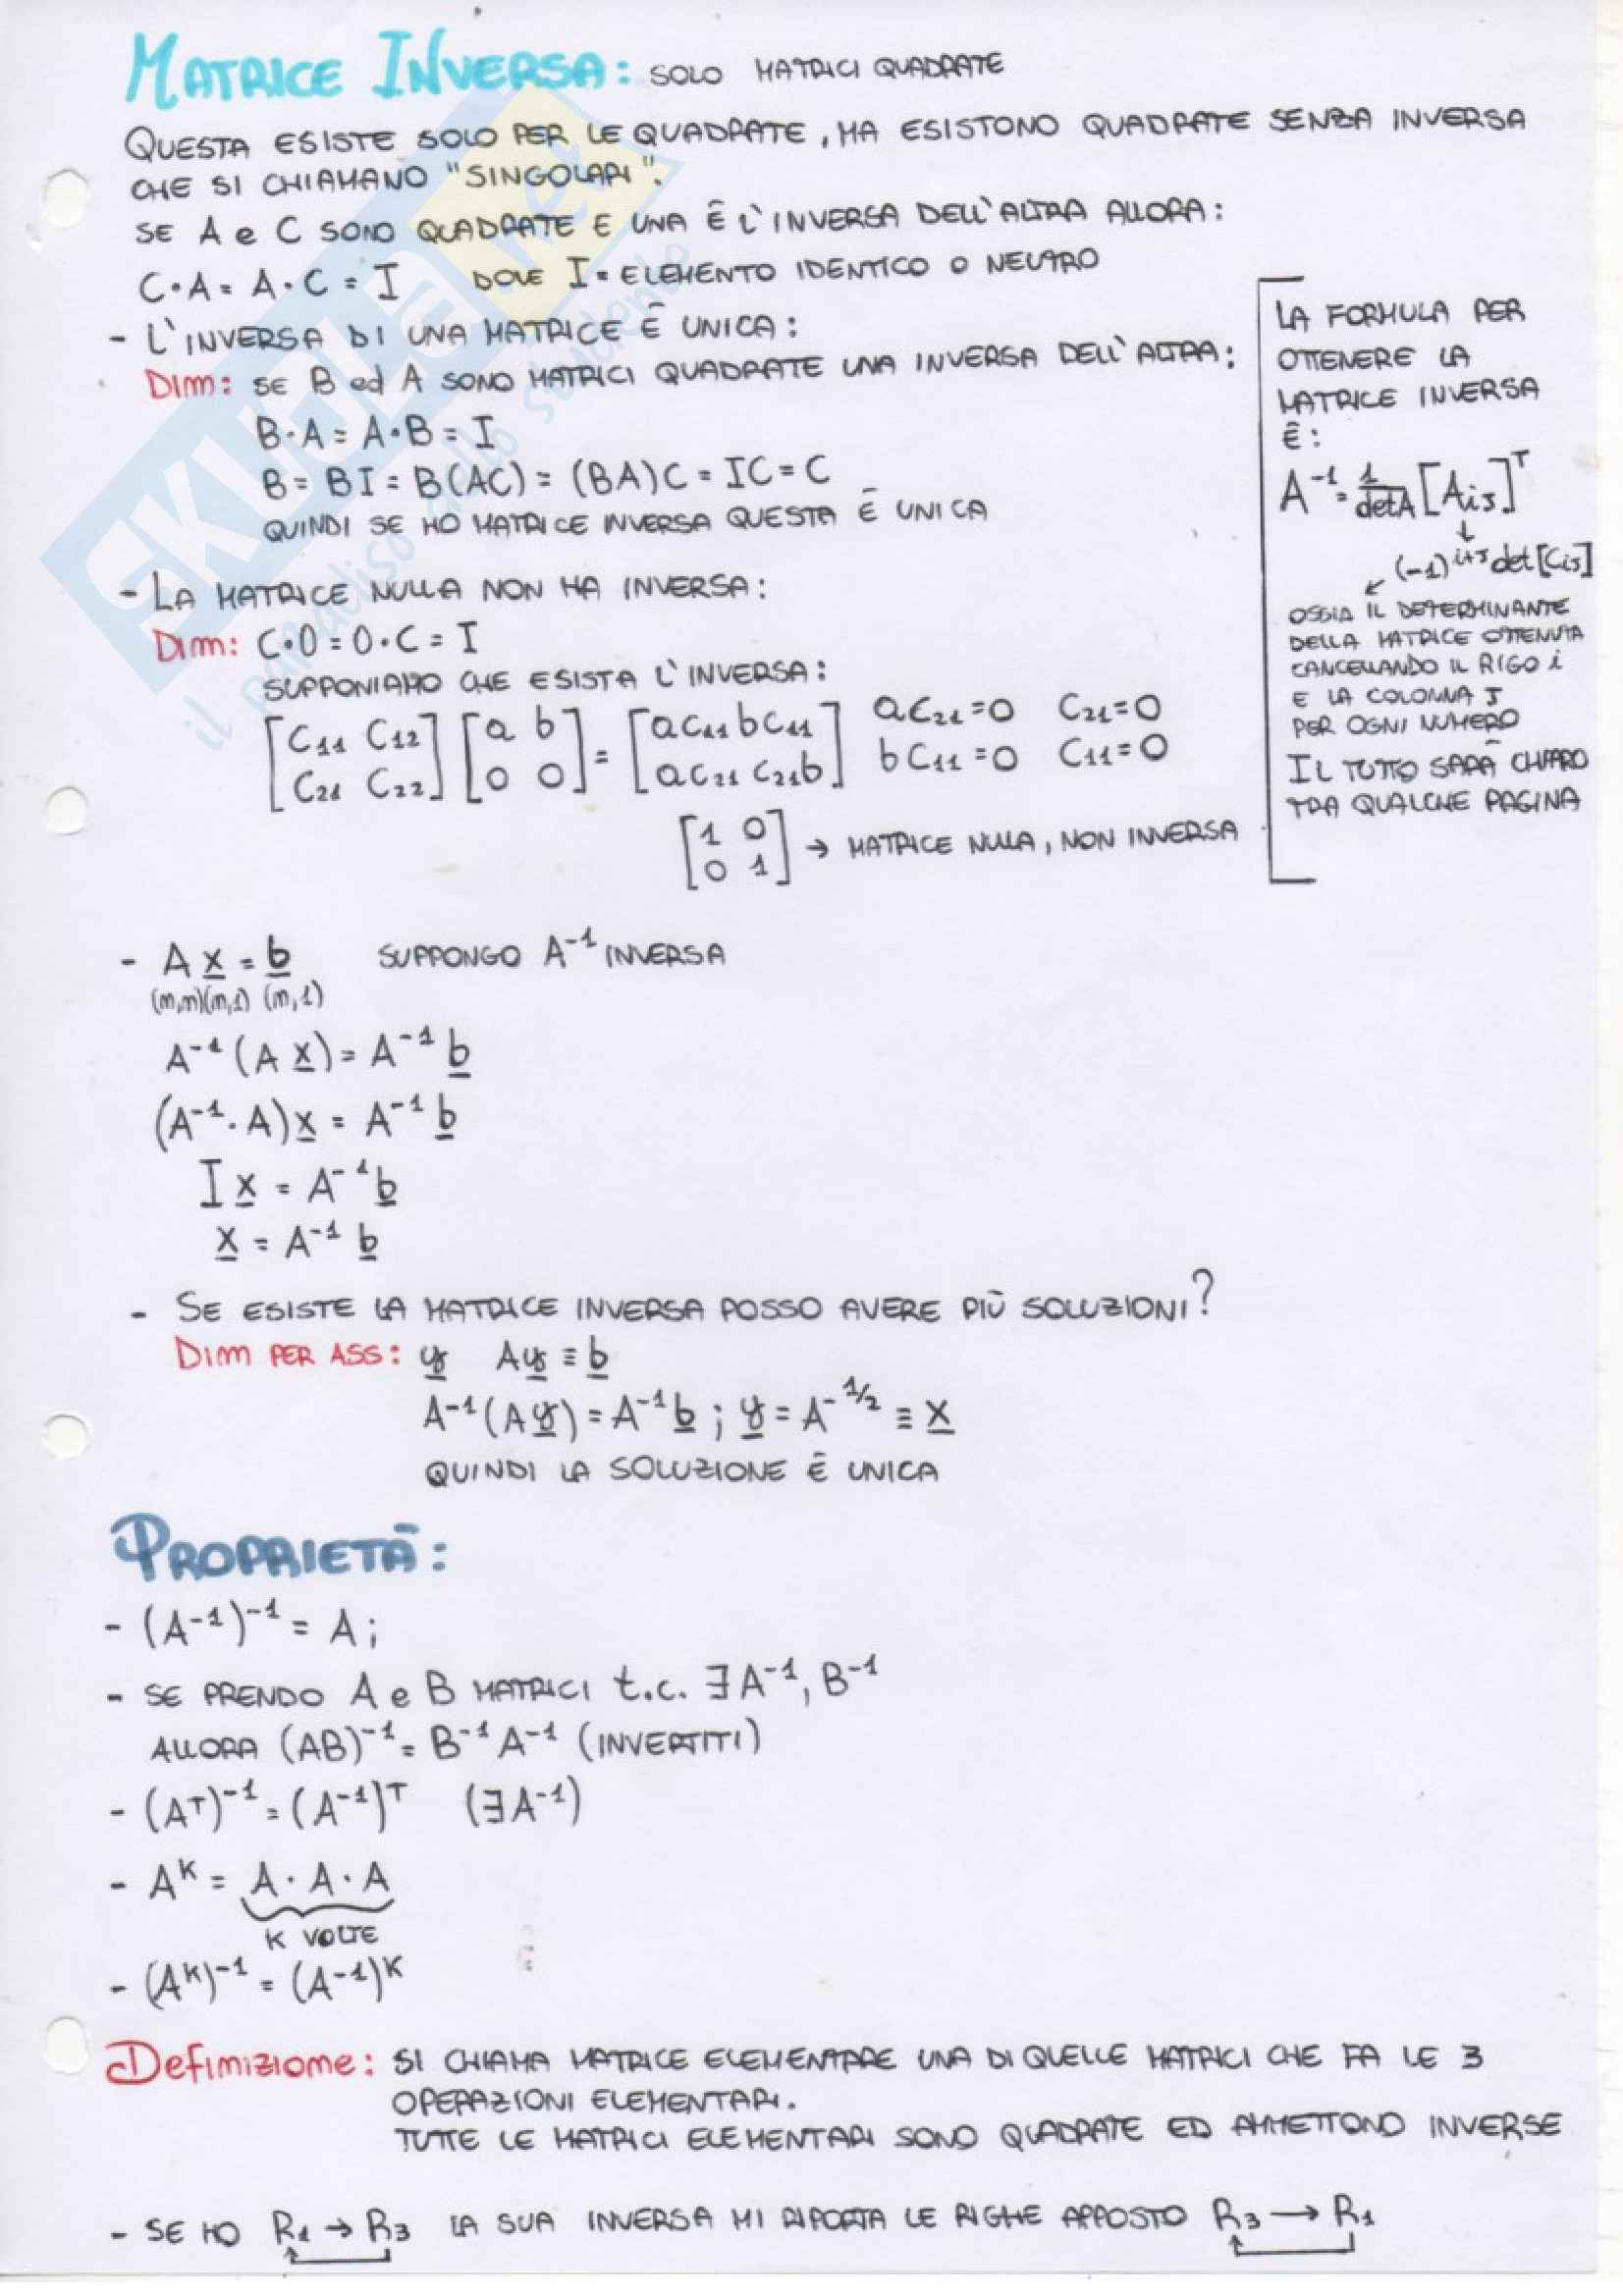 MATRICE INVERSA: SOLO MATRICI QUADRATE
QUESTA ESISTE SOLO PER LE QUADRATE, MA ESISTONO QUADRATE SENZA INVERSA
CHE SI CHIAMANO "SINGOLARI".
SE A e C SONO QUADRATE E UNA È L'INVERSA DELL'ALTRA ALLORA:
C·A = A·C = I DOVE I = ELEMENTO IDENTICO O NEUTRO
- L'INVERSA DI UNA MATRICE È UNICA:
Dim: SE B ed A SONO MATRICI QUADRATE UNA INVERSA DELL'ALTRA:
B·A = A·B = I
B = BI = B(AC) = (BA)C = IC = C
QUINDI SE HO MATRICE INVERSA QUESTA È UNICA
- LA MATRICE NULLA NON HA INVERSA:
Dim: C·0 = 0·C = I
SUPPONIAMO CHE ESISTA L'INVERSA:
[C₁₁ C₁₂] [a b] = [aC₁₁ bC₁₁] aC₂₁=0 C₂₁=0
[C₂₁ C₂₂] [0 0] [aC₂₁ C₂₁b] bC₁₁=0 C₁₁=0
[1 0]
[0 1] → MATRICE NULLA, NON INVERSA
LA FORMULA PER
OTTENERE LA
MATRICE INVERSA
È:
A⁻¹ = 1/detA [Aij]ᵀ
↓
(-1)ⁱ⁺ʲ det[Cij]
OSSIA IL DETERMINANTE
DELLA MATRICE OTTENUTA
CANCELLANDO IL RIGO i
E LA COLONNA J
PER OGNI NUMERO
IL TUTTO SARÀ CHIARO
TRA QUALCHE PAGINA
- A x = b SUPPONGO A⁻¹ INVERSA
(n,n)(n,1) (n,1)
A⁻¹(A x) = A⁻¹ b
(A⁻¹·A)x = A⁻¹ b
I x = A⁻¹ b
x = A⁻¹ b
- SE ESISTE LA MATRICE INVERSA POSSO AVERE PIÙ SOLUZIONI?
Dim PER ASS: y Ay ≡ b
A⁻¹(Ay) = A⁻¹b ; y = A⁻¹/² ≡ x
QUINDI LA SOLUZIONE È UNICA
PROPRIETÀ:
- (A⁻¹)⁻¹ = A;
- SE PRENDO A e B MATRICI t.c. ∃ A⁻¹, B⁻¹
ALLORA (AB)⁻¹ = B⁻¹ A⁻¹ (INVERTITI)
- (Aᵀ)⁻¹ = (A⁻¹)ᵀ (∃ A⁻¹)
- Aᴷ = A·A·A
K VOLTE
- (Aᴷ)⁻¹ = (A⁻¹)ᴷ
Definizione: SI CHIAMA MATRICE ELEMENTARE UNA DI QUELLE MATRICI CHE FA LE 3
OPERAZIONI ELEMENTARI.
TUTTE LE MATRICI ELEMENTARI SONO QUADRATE ED AMMETTONO INVERSE
- SE HO R₁ → R₃ LA SUA INVERSA MI RIPORTA LE RIGHE APPOSTO R₃ → R₁
SKUOLA.net
il paradiso dello studente